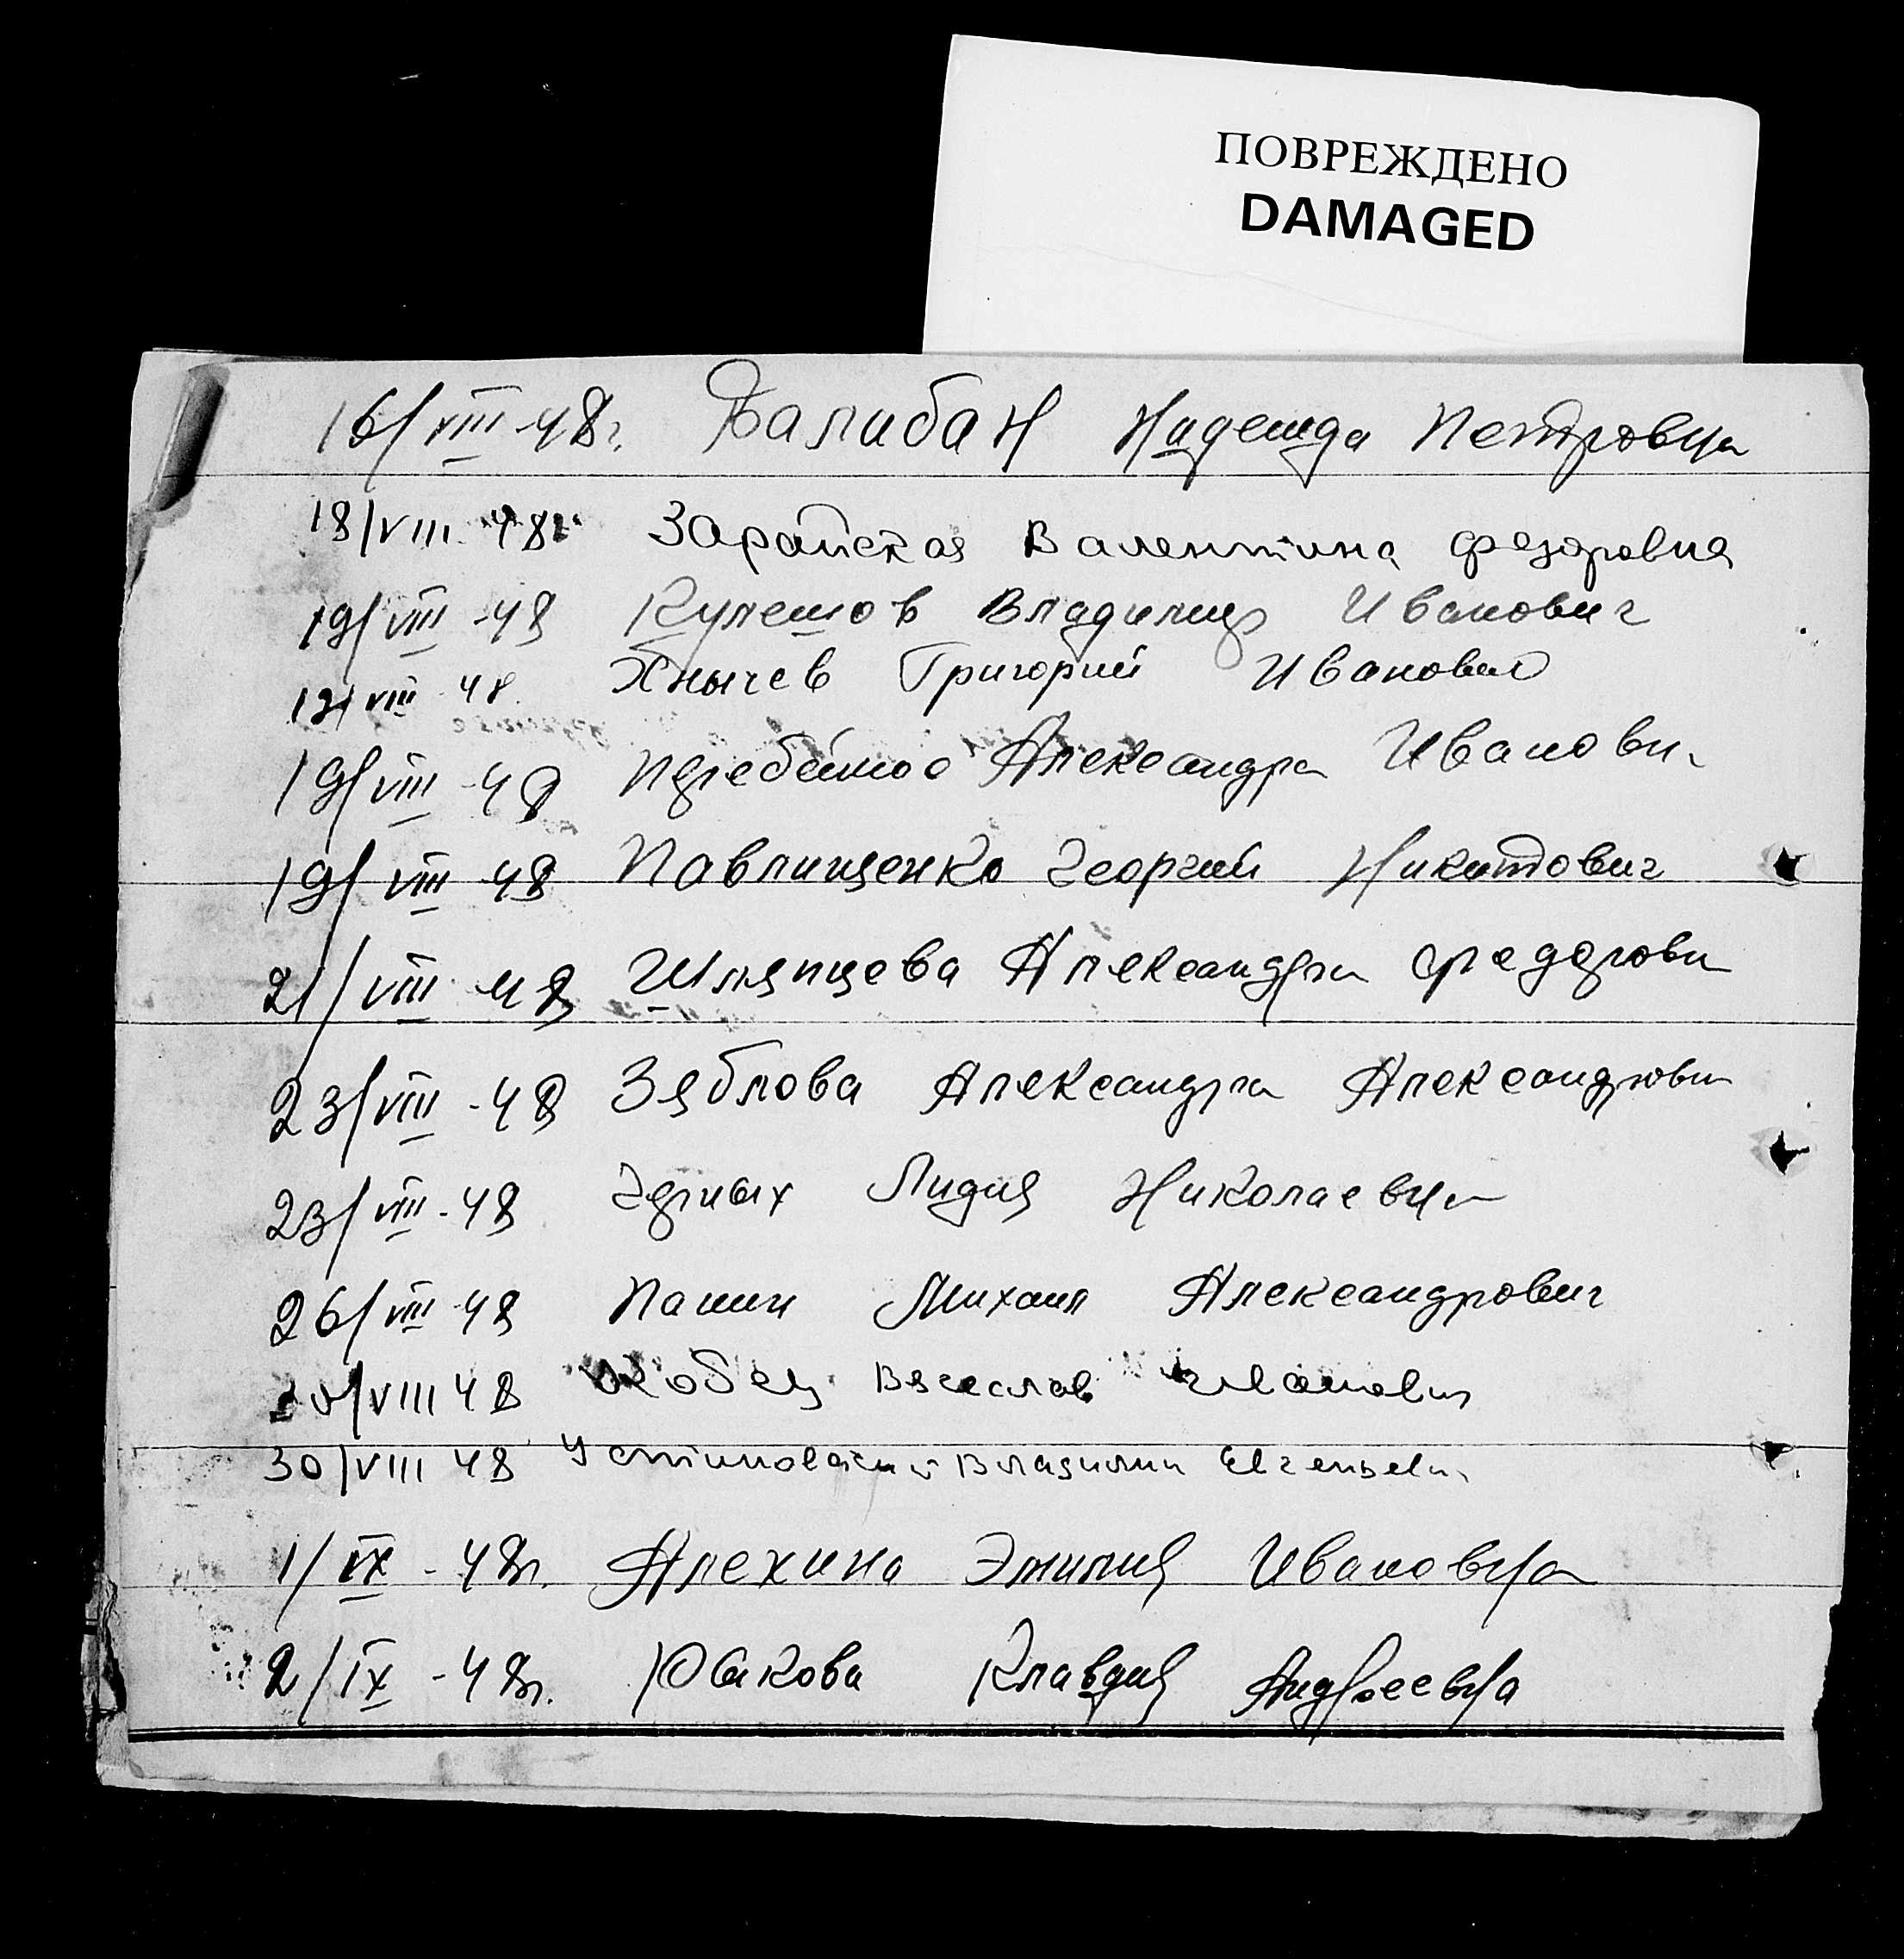 ПОВРЕЖДЕНО
DAMAGED
16/VIII-48г. Балибан Надежда Петровна
18/VIII-48г. Зарайская Валентина Федоровна
19/VIII-48 Кулешов Владимир Иванович
19/VIII-48 Хнычев Григорий Иванович
19/VIII-48 Перебейнос Александра Иванови.
19/VIII-48 Павлищенко Георгий Никитович
21/VIII-48 Шляпцева Александра Федоровн
23/VIII-48 Зяблова Александра Александровн
23/VIII-48 Черных Лидия Николаевна
26/VIII-48 Пашин Михаил Александрович
/VIII 48 Кобец Вячеслав Иванович
30/VIII 48 Устиновский Владимир Евгеньевич
1/IX-48г. Алехина Эмилия Ивановна
2/IX-48г. Юсакова Клавдия Андреевна